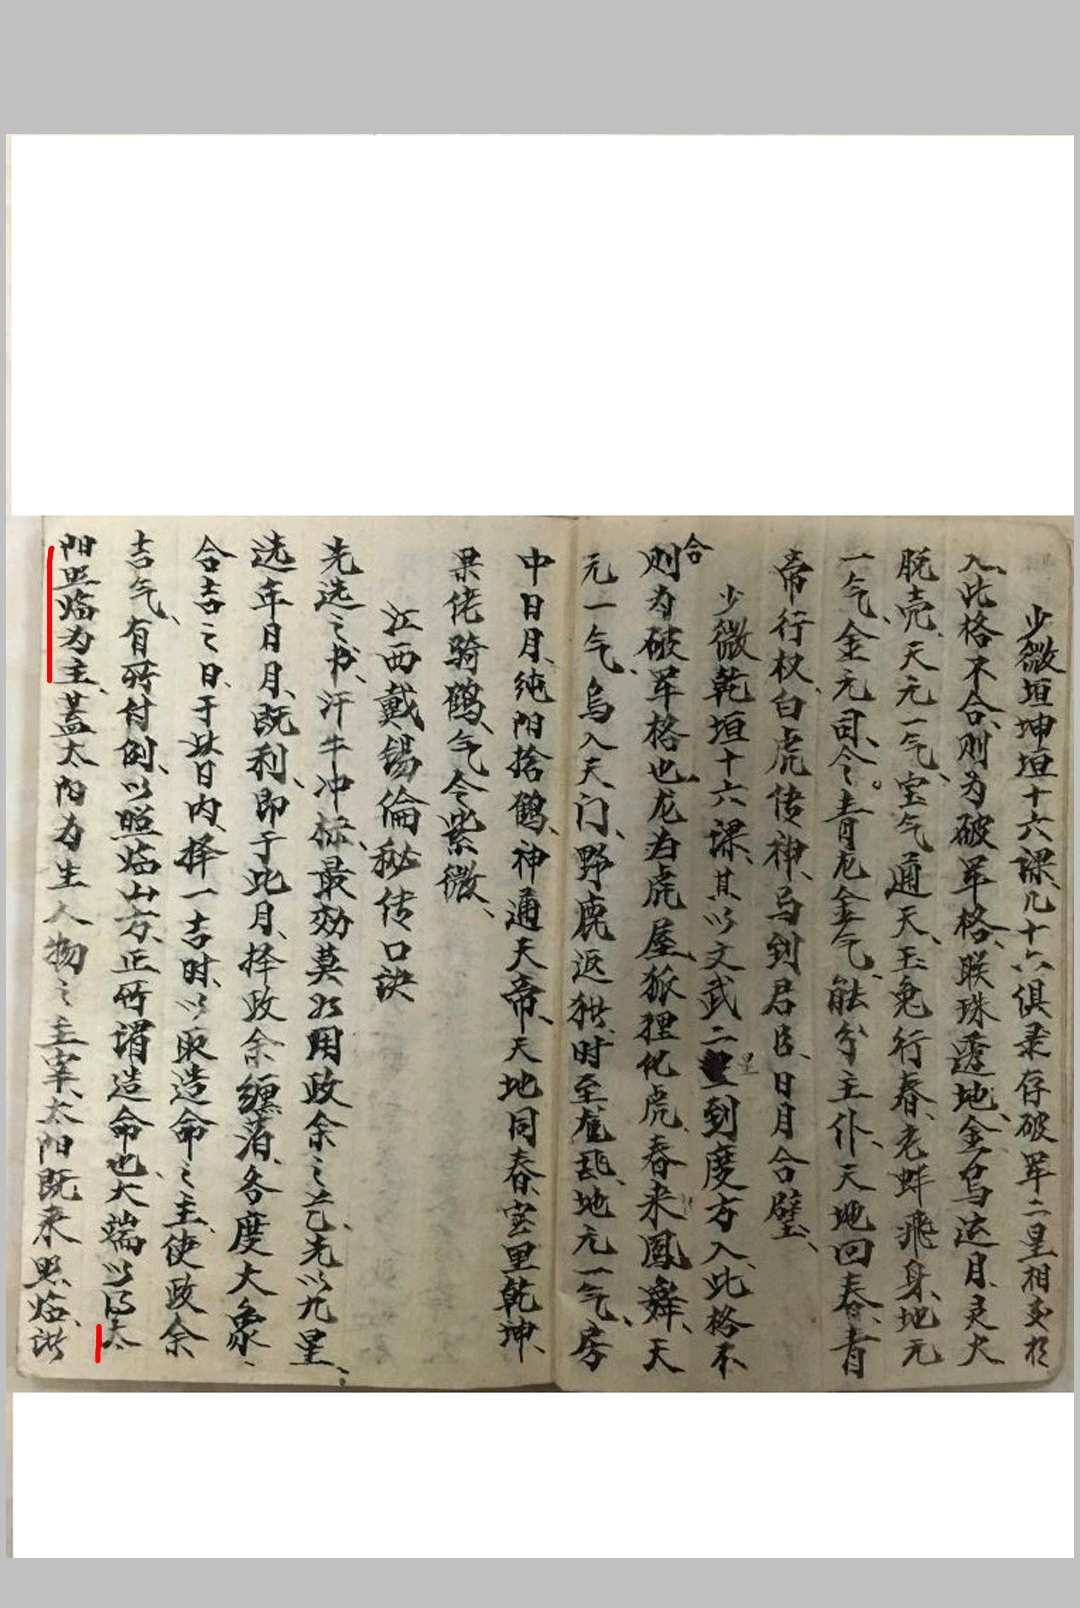 少微垣坤垣十六课、凡十六俱录存破军二星相交于
入、此格不合、则为破军格、联珠透地、金乌达月、灵犬
脱壳、天元一气、宝气通天、玉兔行春、老蚌飛身、地元
一气、金元司令。青龙金气、能分主仆、天地回春、青
帝行权、白虎传神、乌到君臣、日月合璧、
少微乾垣十六课、其以文武二星到度方入、此格不
合
则为破军格也、龙为虎屋、狐狸化虎、春来鳳舞、天
元一气、乌入天门、野鹿返、时至、地元一气、房
中日月、纯阳捨鹤、神通天帝、天地同春、室里乾坤、
果佬骑鹤、气令紫微、
江西戴锡倫秘传口訣
先选之书、汗牛冲标、最効莫如用政余之艺、先以九星、
选年月月、既利、即于此月、择政余缠落、各度大象、
合吉之日、于此日内、择一吉时、以取造命之主、使政余
吉气、有所付例、以照临山方、正所谓造命也、大端以得太
阳照临为主、盖太阳为生人物之主宰、太阳既来照临、諸